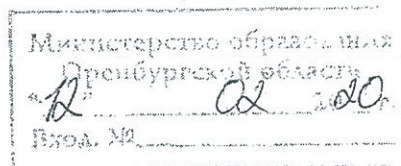 Министерство образования
Оренбургской области
"12" 02 2020 г.
Вход. №